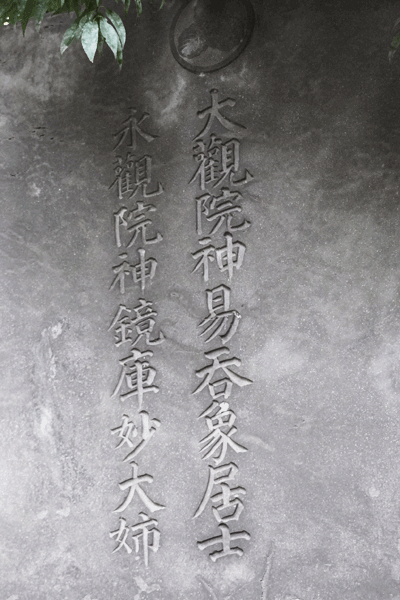 大觀院神易呑象居士
永觀院神鏡庫妙大姉